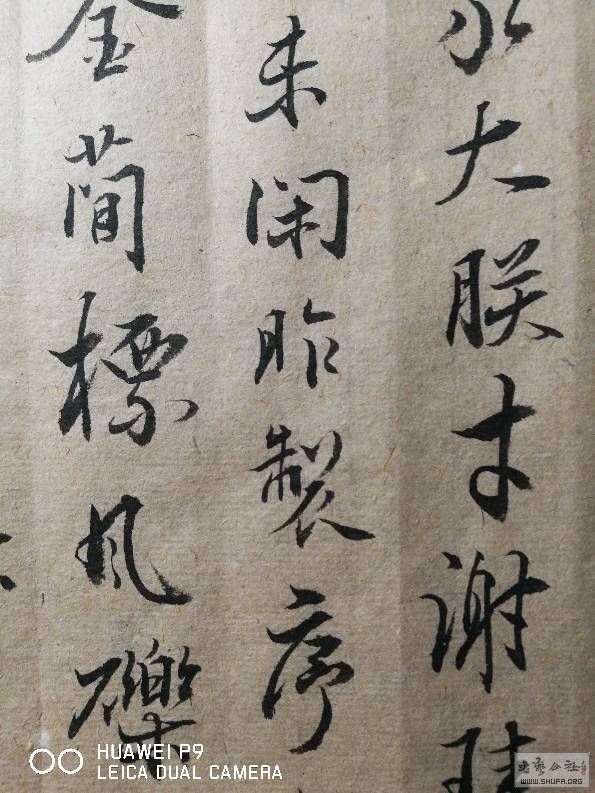 大朕才謝珪
未閑昨製序
金簡標瓦礫
HUAWEI P9
LEICA DUAL CAMERA
书艺公社
WWW.SHUFA.ORG